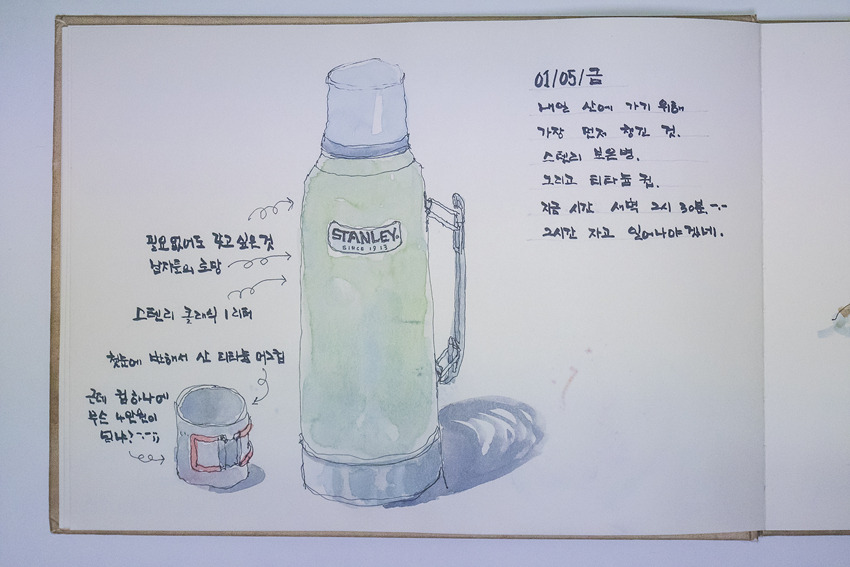 01/05/금
내일 산에 가기 위해
가장 먼저 챙긴 것.
스텐리 보온병.
그리고 티타늄 컵.
지금 시간 새벽 2시 30분. -.-
2시간 자고 일어나야겠네.
STANLEY®
SINCE 1913
필요없어도 갖고 싶은 것
남자들의 로망
스텐리 클래식 1리터
첫눈에 반해서 산 티타늄 머그컵
근데 컵 하나에
무슨 4만원이
넘냐? -.-;;